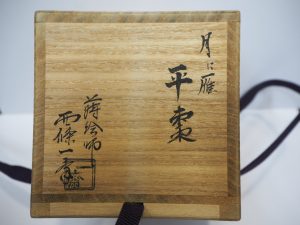 月に雁
平棗
蒔絵師
西條一斎